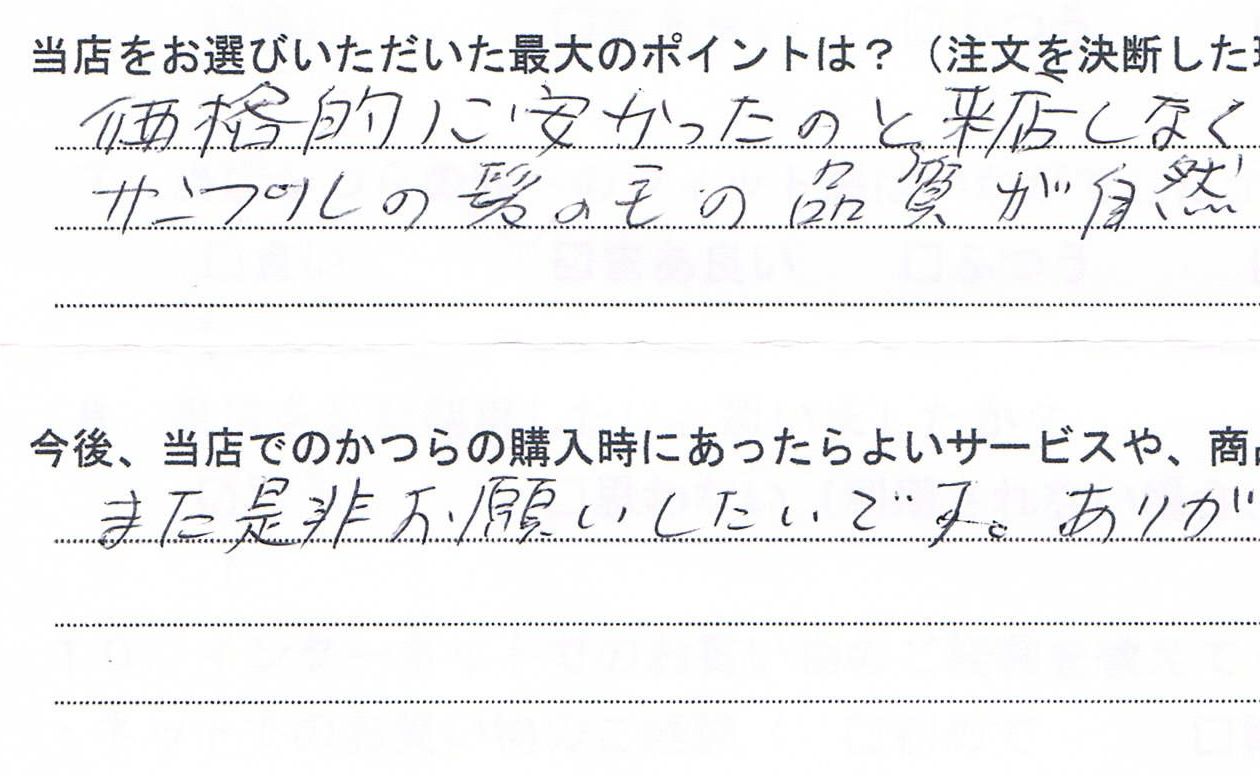 当店をお選びいただいた最大のポイントは？（注文を決断した
価格的に安かったのと、来店しなく
サンプルの髪の毛の品質が自然
今後、当店でのかつらの購入時にあったらよいサービスや、商
また是非お願いしたいです。ありが